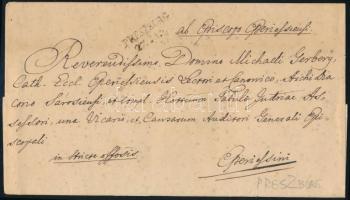 PRESBURG
ab Episcopo Eperiessiensi
Reverendissimo, Domino Michaeli Gerbery,
Cath. Eccl. Eperiessiensis Lectori et Canonico, Archi Dia
cono Sarosiensi, et Compl. Tabulæ Judriae As
sessori, una Vicario, et Causarum Auditori Generali Epi
scopali
in officiosis
Eperiessini
PRESZBURG